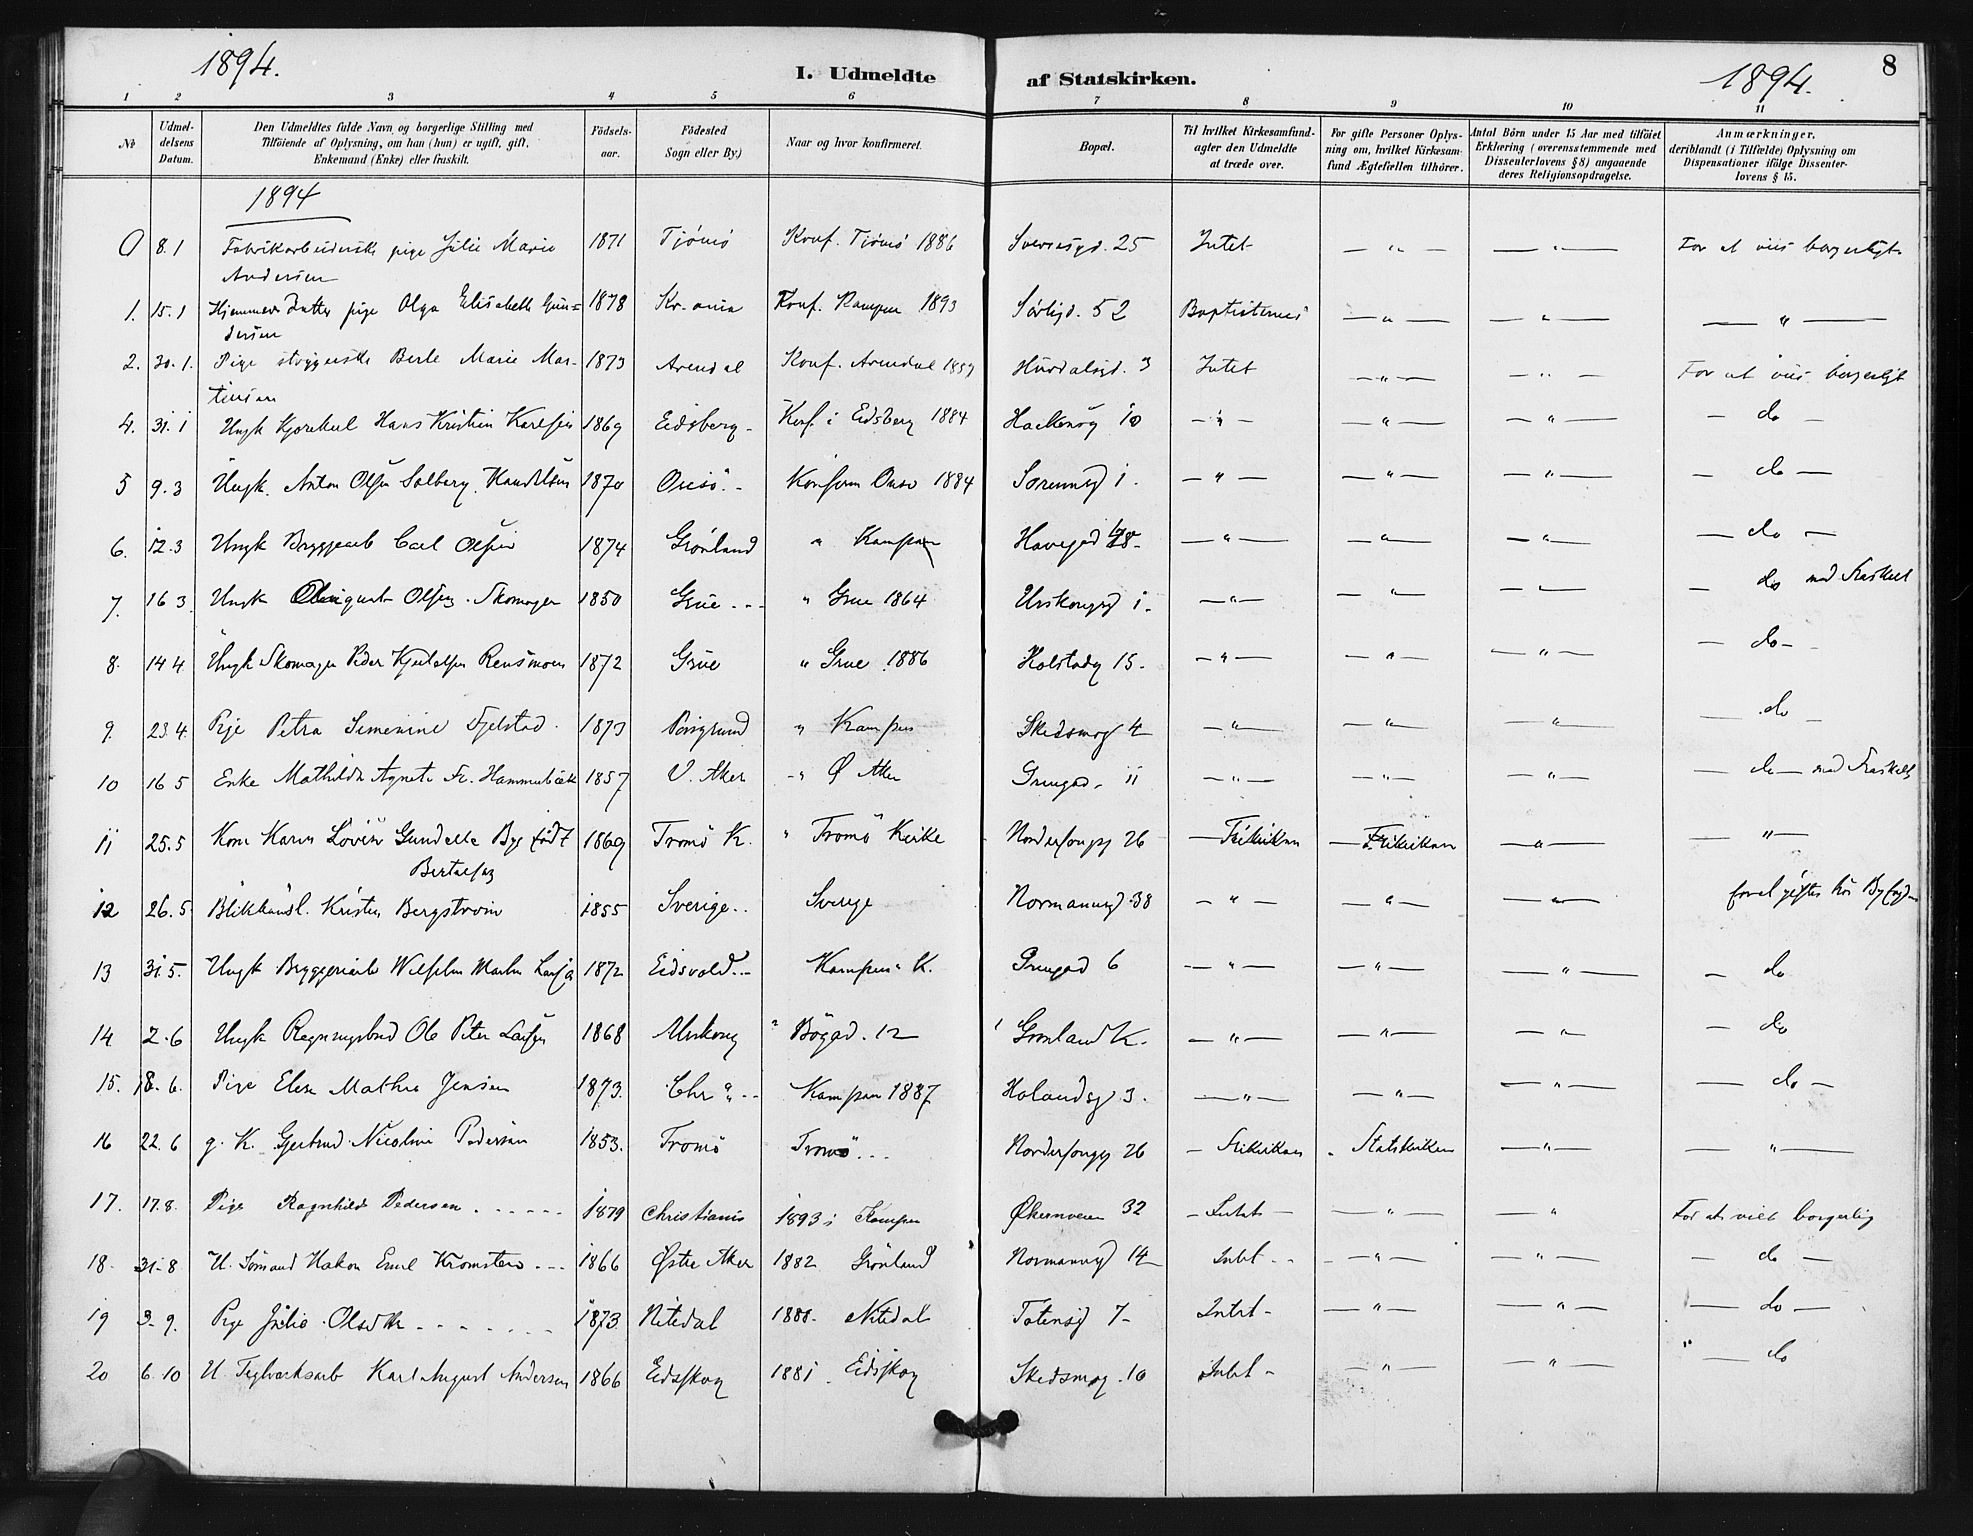 1894.
I. Udmeldte af Statskirken.
1894.
8
1 2 3 4 5 6 7 8 9 10 11
No
Udmeldelsens Datum.
Den Udmeldtes fulde Navn og borgerlige Stilling med
Tilføiende af Oplysning, om han (hun) er ugift, gift,
Enkemand (Enke) eller fraskilt.
Fødselsaar.
Fødested
Sogn eller By.)
Naar og hvor konfirmeret.
Bopæl.
Til hvilket Kirkesamfund
agter den Udmeldte
at træde over.
For gifte Personer Oplysning om, hvilket Kirkesamfund Ægtefællen tilhører.
Antal Børn under 15 Aar med tilføiet
Erklæring (overensstemmende med
Dissenterlovens § 8) angaaende
deres Religionsopdragelse.
Anmærkninger,
deriblandt (i Tilfælde) Oplysning om
Dispensationer ifølge Dissenterlovens § 15.
1894
0 8.1 Fabrikarbeiderske pige Julie Marie 1871 Tjømø Konf. Tjømø 1886 25 Intet — " — — " — For at vies borgerligt
Andersen
1. 15.1 Hjemmev. Datter pige Olga Elisabeth Gun= 1878 Kr.ania Konf. Kampen 1893 Sørligd. 52 Baptisternes — " — — " — — " —
dersen
2. 30.1. Pige Berte Marie Mar- 1873 Arendal Konf. Arendal 1889 Hurdalsgd. 3 Intet — " — — " — For at vies borgerligt
tinsen
4. 31.1 Ungk Hans Kristian Karlsen 1869 Eidsberg - Konf. i Eidsberg 1884 10 — " — — " — — " — — do —
5 9.3 Ungk. Anton Olsen Solberg. 1870 Onsø. - Konform Onsø 1884 Sørumsgd 1. — " — — " — — " — — do —
6. 12.3 Ungk Bryggearb Carl Olsen 1874 Grønland " Kampen Havegad — " — — " — — " — — do —
7. 16 3 Ungk Olsen. Skomager 1850 Grue - - - " Grue 1864 Urskouggd 1. — " — — " — — " — — do med
8. 14 4 Ungk Skomager Peder Rensmoen 1872 Grue " Grue 1886 Holstadg 15. — " — — " — — " — — do -
9. 23 4. Pige Petra Simenine Fjelstad. 1873 Porsgrund " Kampen Skedsmog 4 — " — — " — — " — — do —
10 16 5 Enke Mathilde Agnete Fr. Hammerbæk 1857 V. Aker - " Ø Aker Grengad. 11 — " — — " — — " — — do — med
11 25.5 Kone Karen Lovise Gundella Bye født 1869 Tromø K. " Tromø Kirke 26 — Frikirken — Frikirken — " — — " —
Bertelsen
12 26.5 Blikkensl. Kristen Bergstrøm 1855 Sverige.. Sverige Normannsgd. 38 — " — — " — — " —
13 31.5. Ungk Bryggeriarb Wilhelm Martin 1872 Eidsvold.. - Kampens K. Grengad 6 — " — — " — — " — — do
14 2.6 Ungk Ole Peter Larsen 1868 Urskoug " Bøgad. 12 Grønland K. — " — — " — — " — — do
15. 18.6. Pige Elise Mathea Jensen 1873. Chr a.. Kampen 1887 3. — " — — " — — " — — do —
16 22.6 g. K. Gjertrud Nicoline Pedersen 1853. Tromø Tromø... 26 — Frikirken Statskirken — " — — " —
17. 17.8. Pige Ragnhild Pedersen . . . - - - 1879 Christiania 1893 i Kampen Økernveien 32 — Intet — — " — " For at vies borgerlig
18. 31-8. U. Sømand Hakon Emil Kromsten . - - 1866 Østre Aker 1882 Grønland Normannsgd 14 Intet - - — " — — " — — do —
19 3-9. Pige Julie Olsdtr - - - - - - 1873. Nitedal 1888- Nitedal Totensgd 7- Intet - — " — — " — — do —
20 6.10 U. Teglværksarb Karl August Andersen 1866 Eidskog 1881. Eidskog Skedsmog. 10 Intet - — " — — " — " — do